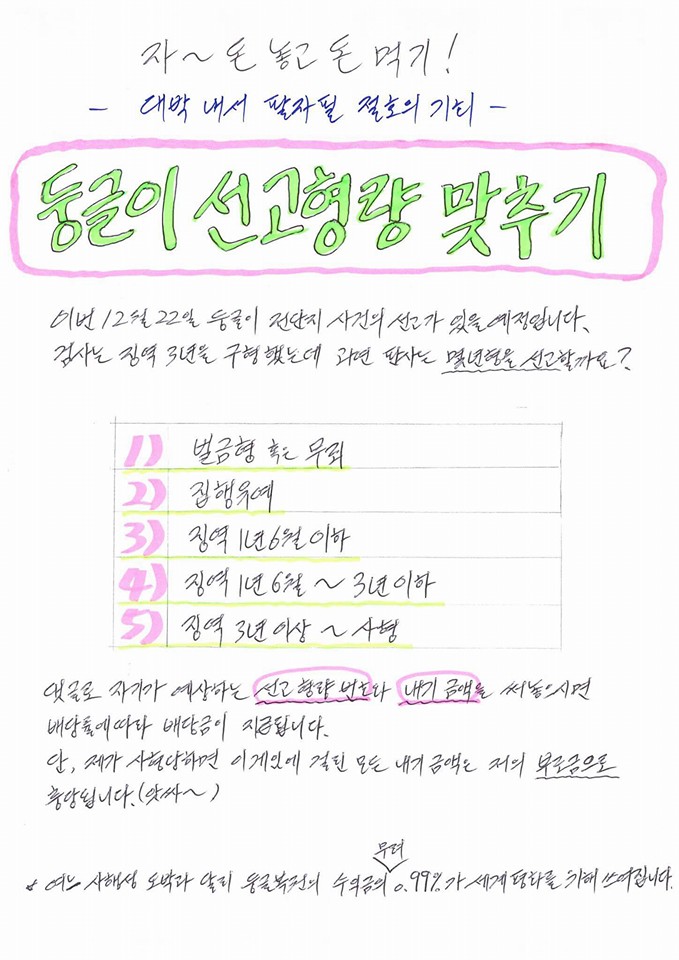 자~ 돈 놓고 돈 먹기!
- 대박 내서 팔자필 절호의 기회 -
둥글이 선고형량 맞추기
이번 12월 22일 둥글이 전단지 사건의 선고가 있을 예정입니다.
검사는 징역 3년을 구형했는데 과연 판사는 몇년형을 선고할까요?
1) 벌금형 혹은 무죄
2) 집행유예
3) 징역 1년 6월 이하
4) 징역 1년 6월 ~ 3년 이하
5) 징역 3년 이상 ~ 사형
댓글로 자기가 예상하는 선고 형량 번호와 내기 금액을 써놓으시면
배당률에따라 배당금이 지급됩니다.
단, 제가 사형당하면 이게임에 걸린 모든 내기 금액은 저의 부조금으로
충당됩니다.(앗싸~)
무려
* 여느 사행성 도박과 달리 둥글복권의 수익금의 0.99%가 세계평화를 위해 쓰여집니다.